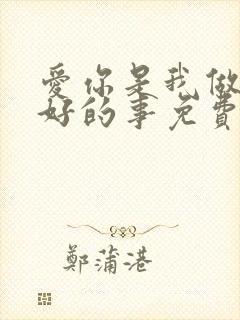 愛你是我做
好的事免費
鄭蒲港